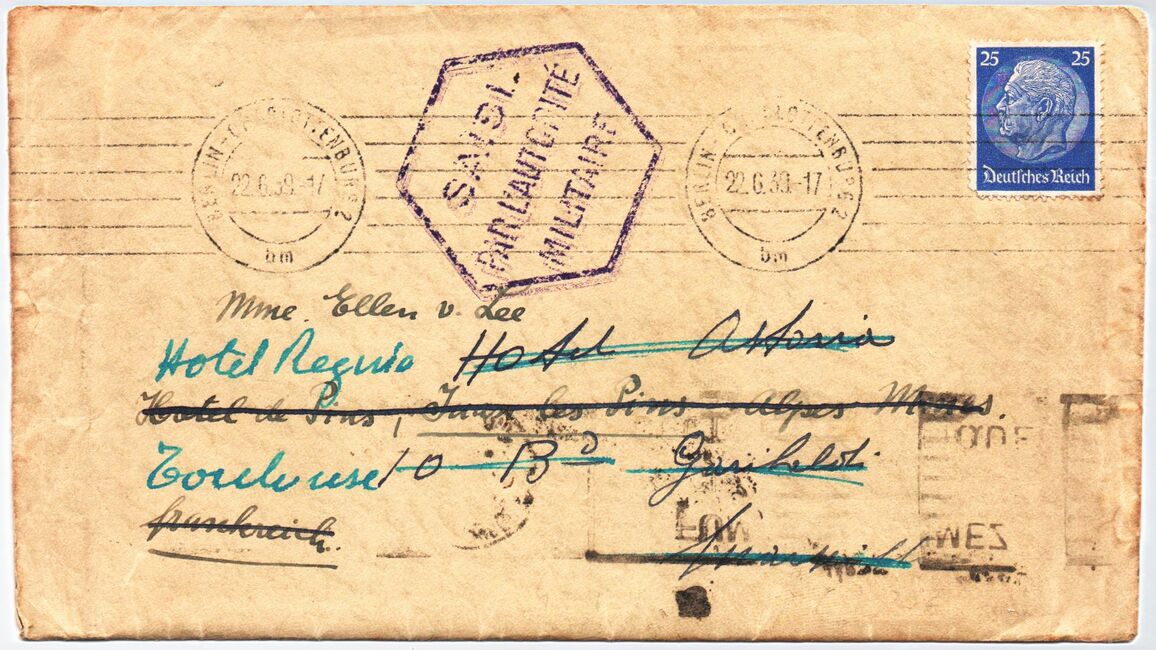 25 25
Deutsches Reich
BERLIN-CHARLOTTENBURG 2
22.6.39.-17
bm
SAISI
PAR L'AUTORITÉ
MILITAIRE
BERLIN-CHARLOTTENBURG 2
22.6.39.-17
bm
Mme. Ellen v. Lee
Hotel Regina Hotel Astoria
Hotel de Pins, Juan les Pins - Alpes Mares.
Toulouse 10 Bd Garibaldi
Frankreich.
QUE
MEZ